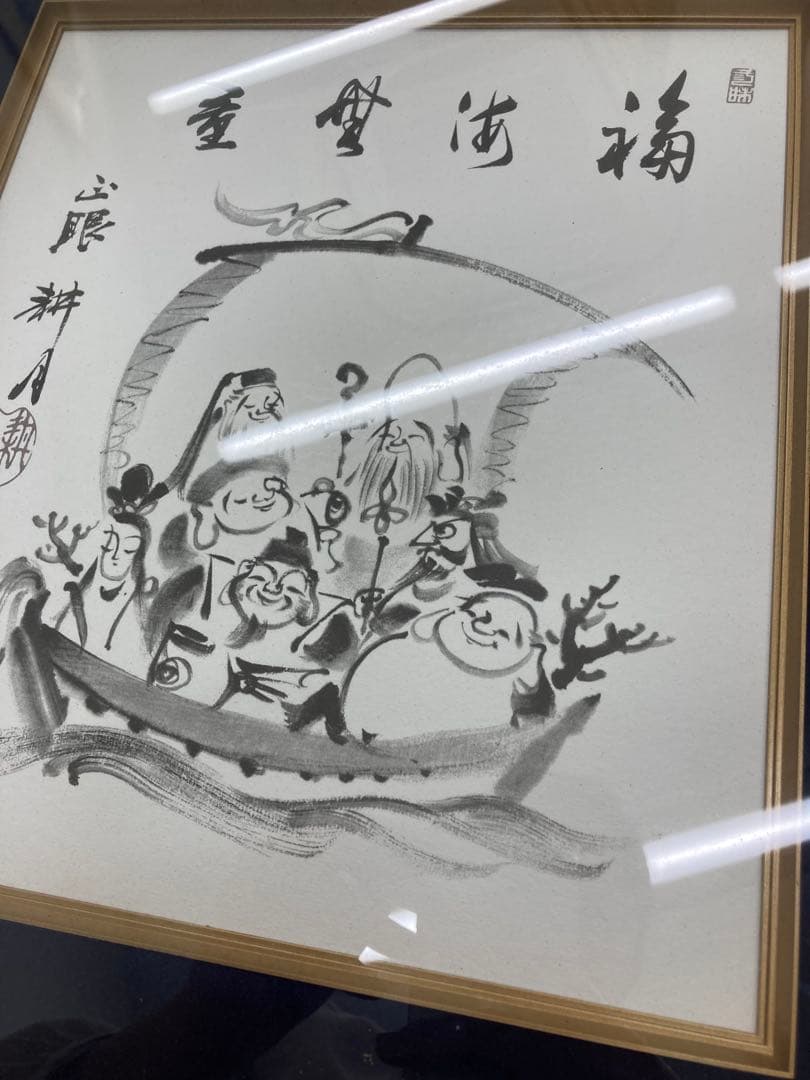 福海無量
正眼 耕月